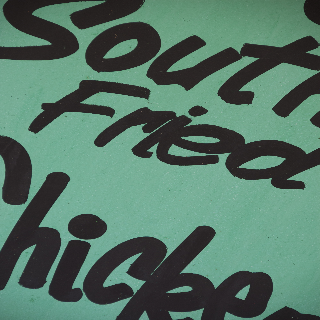 South
Fried
Chicke